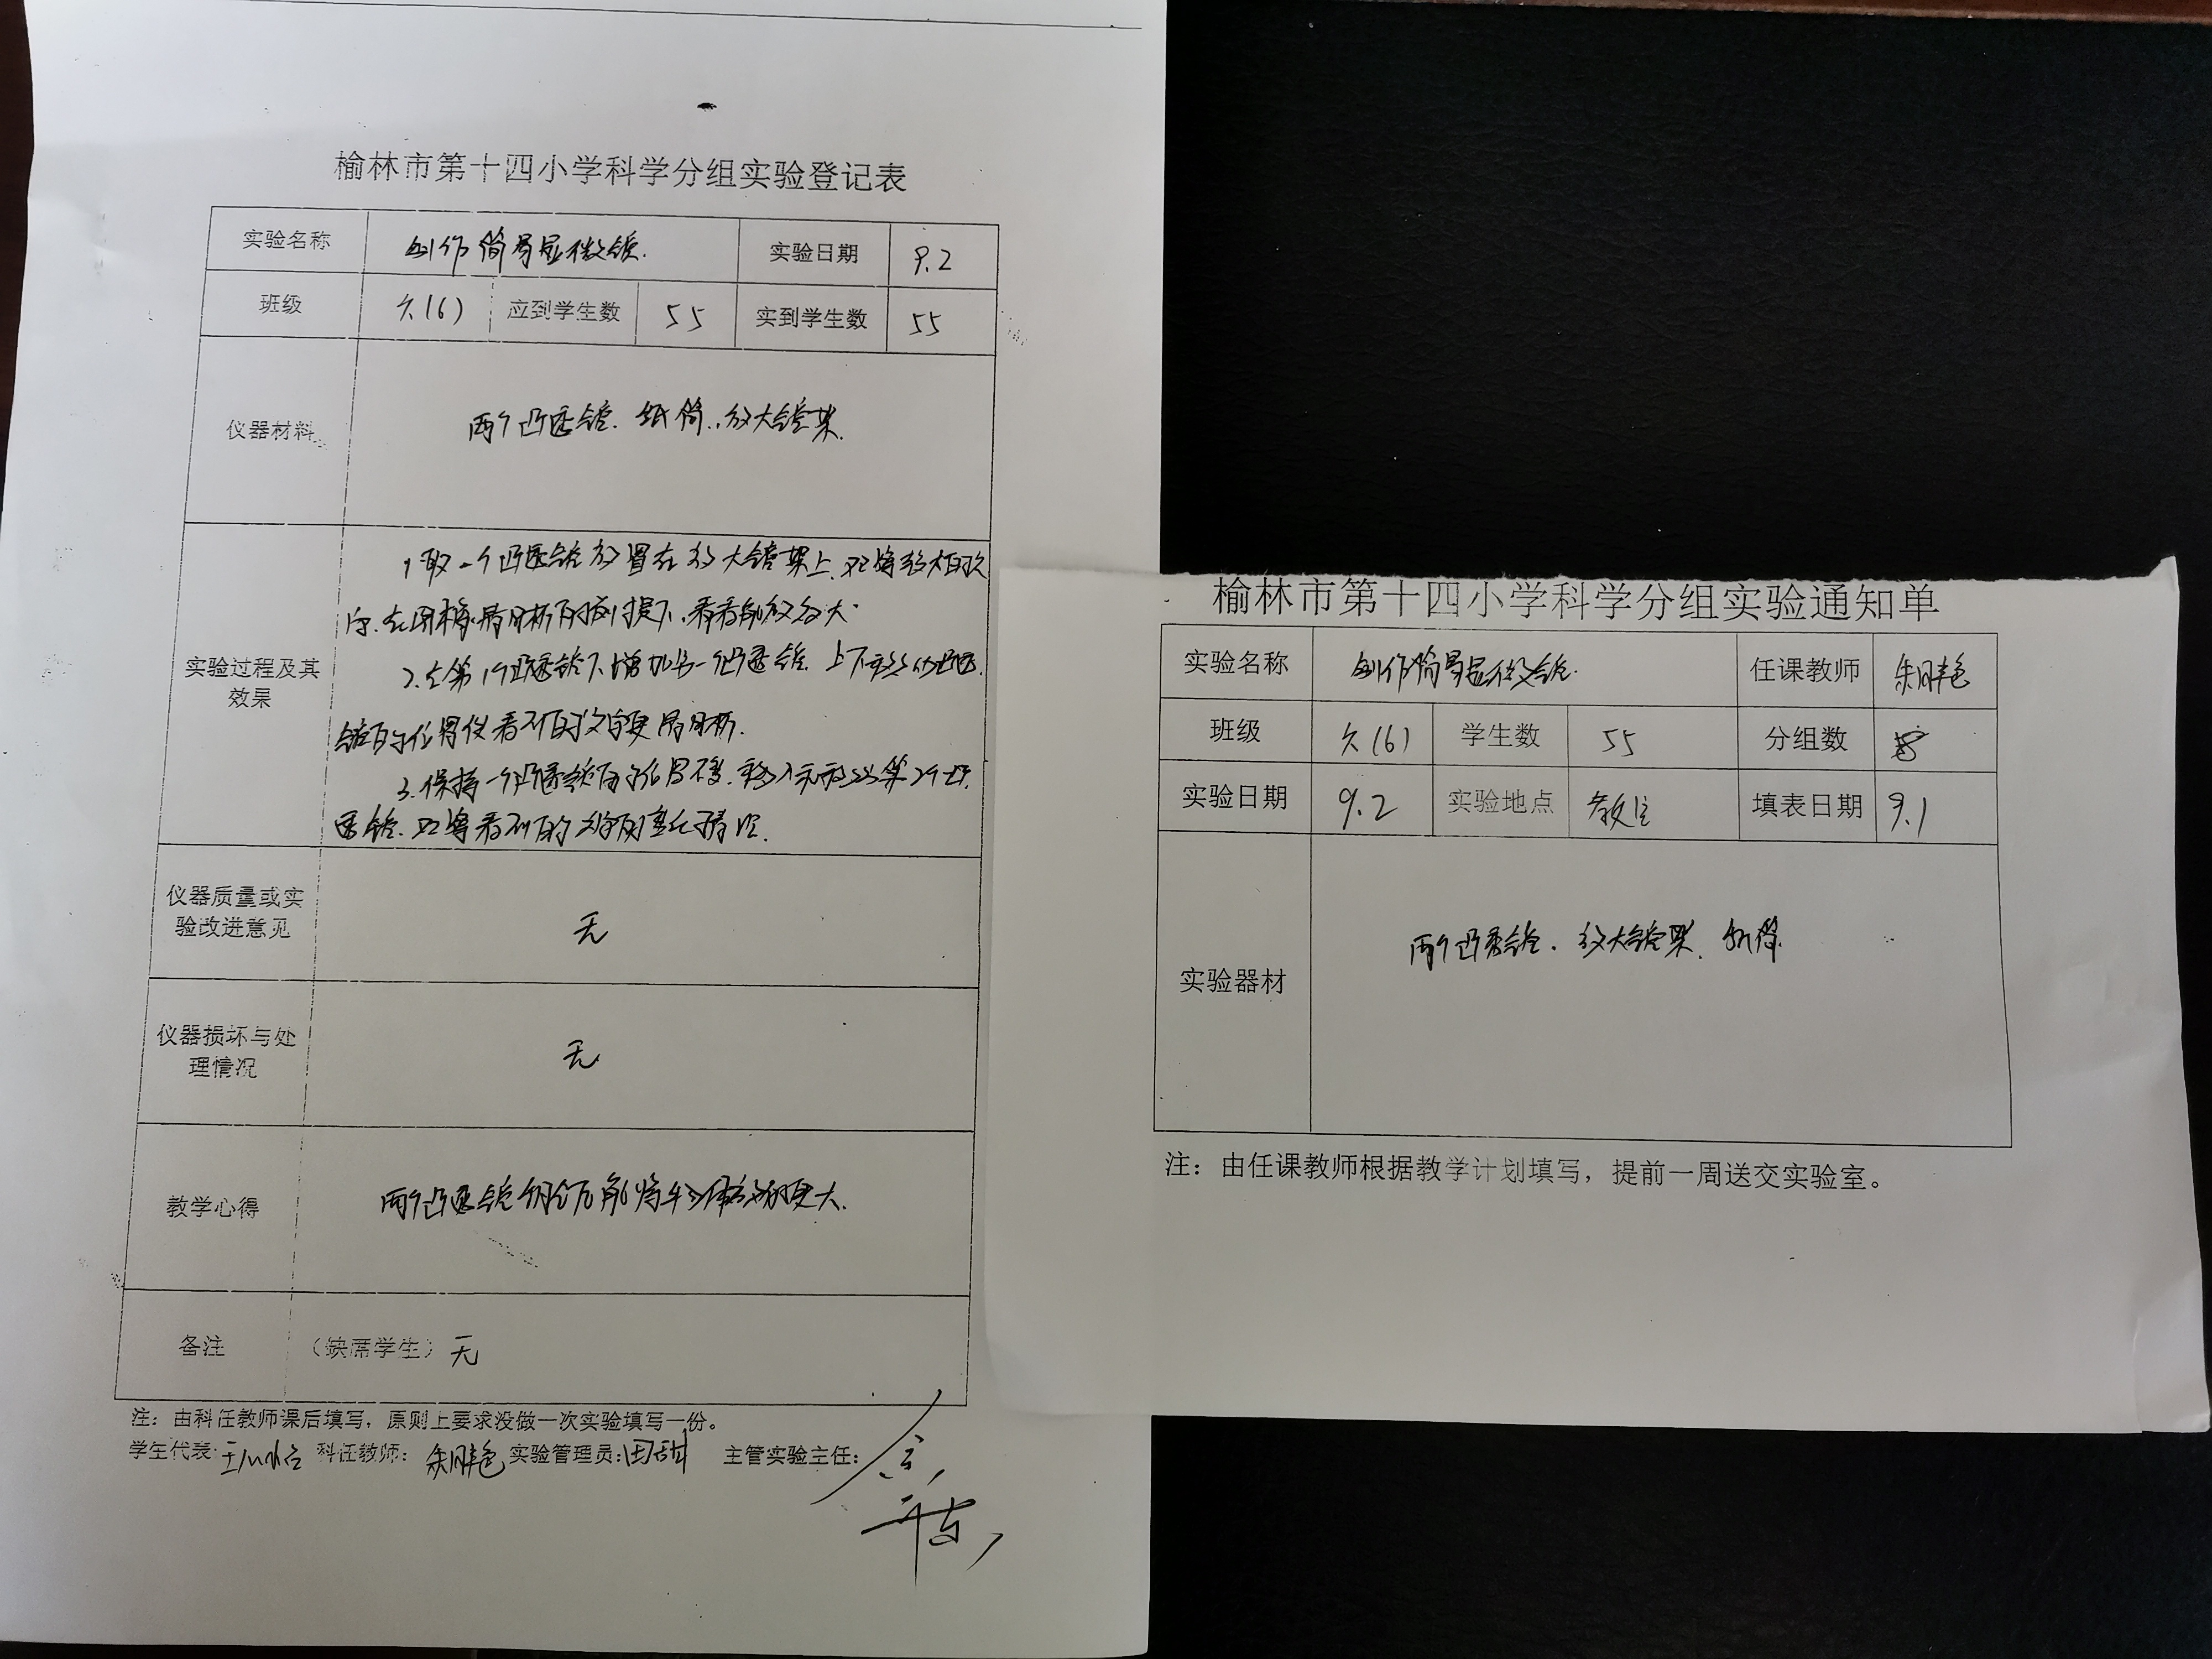 榆林市第十四小学科学分组实验登记表
实验名称 制作简易显微镜. 实验日期 9.2
班级 六(6) 应到学生数 55 实到学生数 55
仪器材料 两个凸透镜. 纸筒. 放大镜架.
实验过程及其效果
1.取一个凸透镜放置在放大镜架上.观察放大的
在图像清晰的前提下.看看能放多大.
2.在第1个凸透镜下增加另一个凸透镜.上下移动凸透
镜的位置使看到的文字更清晰.
3.保持一个凸透镜的位置不变.第2个凸
透镜.观察看到的变化情况.
仪器质量或实验改进意见 无
仪器损坏与处理情况 无
教学心得 两个凸透镜组合后能将物体放得更大.
备注 (缺席学生) 无
注：由科任教师课后填写，原则上要求没做一次实验填写一份。
学生代表: 科任教师: 实验管理员:田甜 主管实验主任:
榆林市第十四小学科学分组实验通知单
实验名称 制作简易显微镜. 任课教师
班级 六(6) 学生数 55 分组数
实验日期 9.2 实验地点 教室 填表日期 9.1
实验器材 两个凸透镜. 放大镜架. 纸筒.
注：由任课教师根据教学计划填写，提前一周送交实验室。